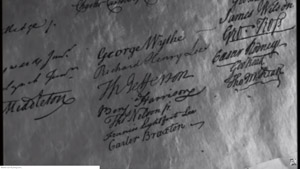 George Wythe
Richard Henry Lee
Th Jefferson
Benj Harrison
Thos Nelson jr.
Francis Lightfoot Lee
Carter Braxton
Middleton
James Wilson
Geo. Ross
Caesar Rodney
Geo Read
Tho M:Kean